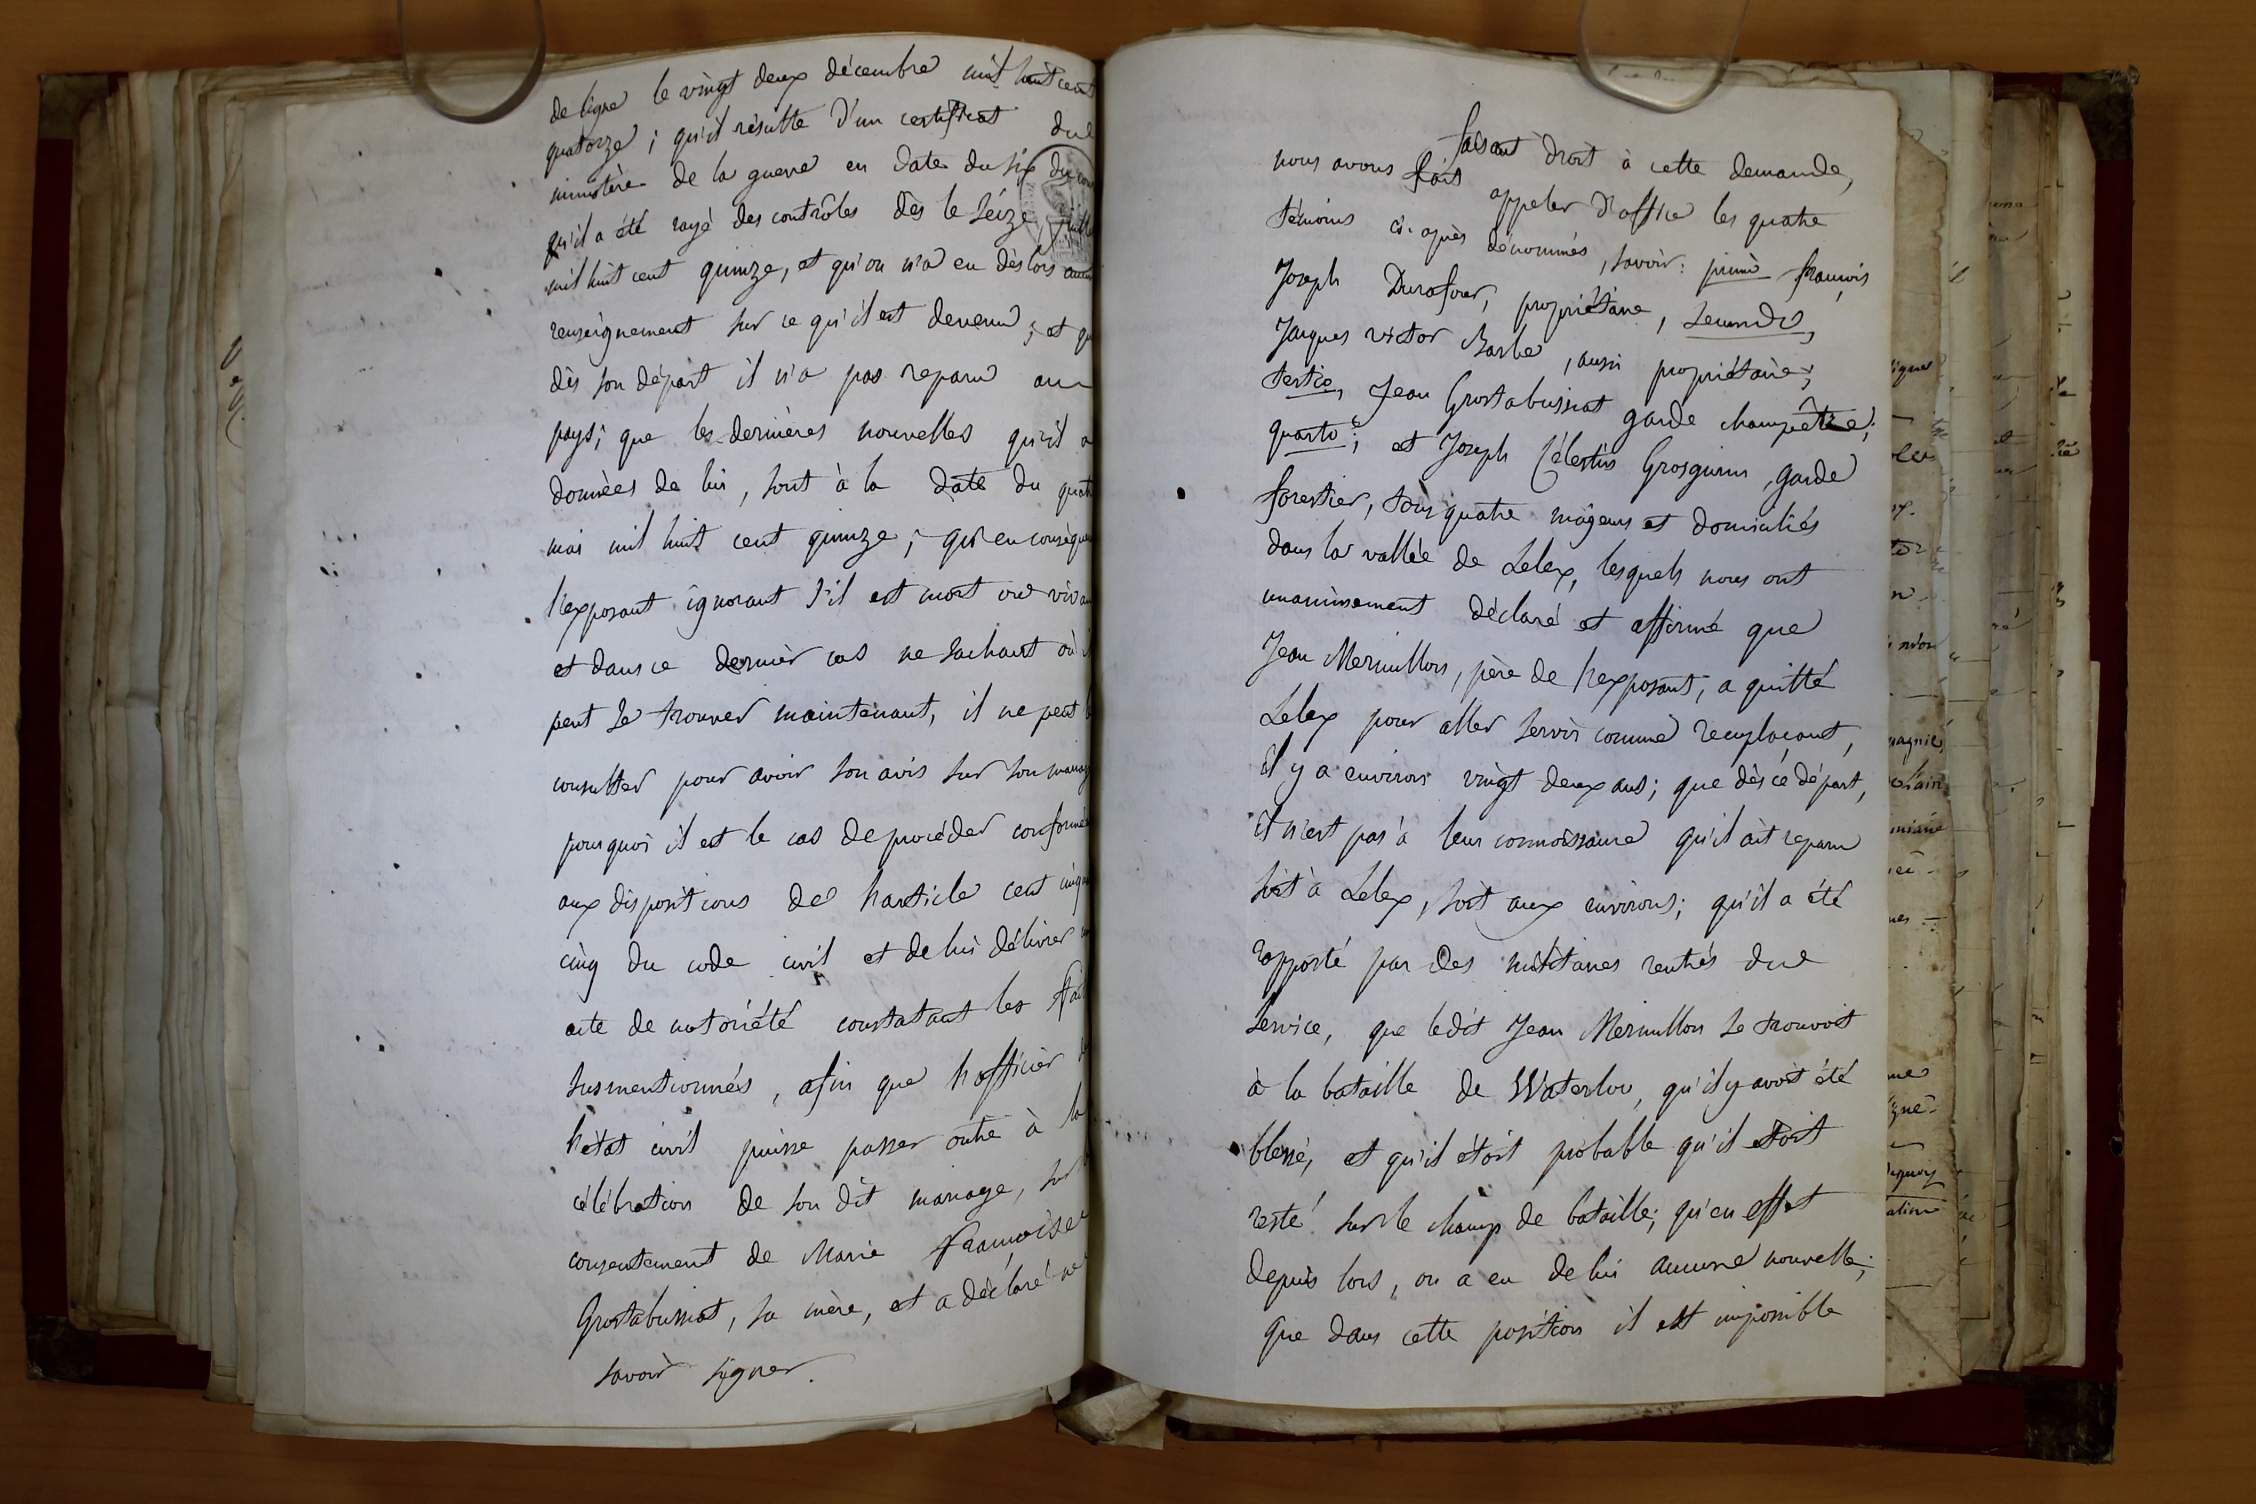 de ligne le vingt deux décembre mil huit cent
quatorze ; qu'il résulte d'un certificat du
ministère de la guerre en date du six du
qu'il a été rayé des contrôles dès le seize
mil huit cent quinze, et qu'on n'a eu dès lors
renseignement sur ce qu'il est devenu ; et
dès son départ il n'a pas reparu au
pays ; que les dernières nouvelles qu'il a
données de lui, sont à la date du
mai mil huit cent quinze ; qu'en
l'exposant ignorant s'il est mort ou
et dans ce dernier cas ne sachant où
peut se trouver maintenant, il ne peut
consulter pour avoir son avis sur son
pourquoi il est le cas de procéder
aux dispositions de l'article cent
cinq du code civil et de lui délivrer
acte de notoriété constatant les
susmentionnés, afin que l'officier
l'état civil puisse passer outre à la
célébration de son dit mariage, sur
consentement de Marie françoise
Grostabussiat, sa mère, et a déclaré ne
savoir signer.
faisant droit à cette demande,
nous avons fait appeler d'office les quatre
témoins ci-après dénommés, savoir : primò françois
Joseph Durafour, propriétaire, secundò,
Jacques victor Barbe, aussi propriétaire ;
tertio, Jean Grostabussiat garde champêtre ;
quarto ; et Joseph Célestin Grosgurin, garde
forestier, tous quatre majeurs et domiciliés
dans la vallée de Lelex, lesquels nous ont
unanimement déclaré et affirmé que
Jean Mermillon, père de l'exposant, a quitté
Lelex pour aller servir comme remplaçant,
il y a environ vingt deux ans ; que dès ce départ,
il n'est pas à leur connoissance qu'il ait reparu
soit à Lelex, soit aux environs ; qu'il a été
rapporté par des militaires rentrés du
service, que ledit Jean Mermillon se trouvoit
à la bataille de Waterloo, qu'il y avoit été
blessé, et qu'il étoit probable qu'il étoit
resté sur le champ de bataille ; qu'en effet
depuis lors, on a eu de lui aucune nouvelle ;
que dans cette position il est impossible